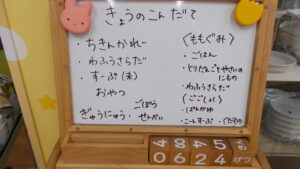 きょうのこんだて
・ちきんかれー
・わふうさらだ
・すーぷ(末)
おやつ
ごぼう
ぎゅうにゅう・せんべい
(ももぐみ)
・ごはん
・とりだんごとやさいの
にもの
・わふうさらだ
(ごごしょく)
・ぱんがゆ
・こーんすーぷ・くだもの
4 8 4 5
0 6 2 4 げつ